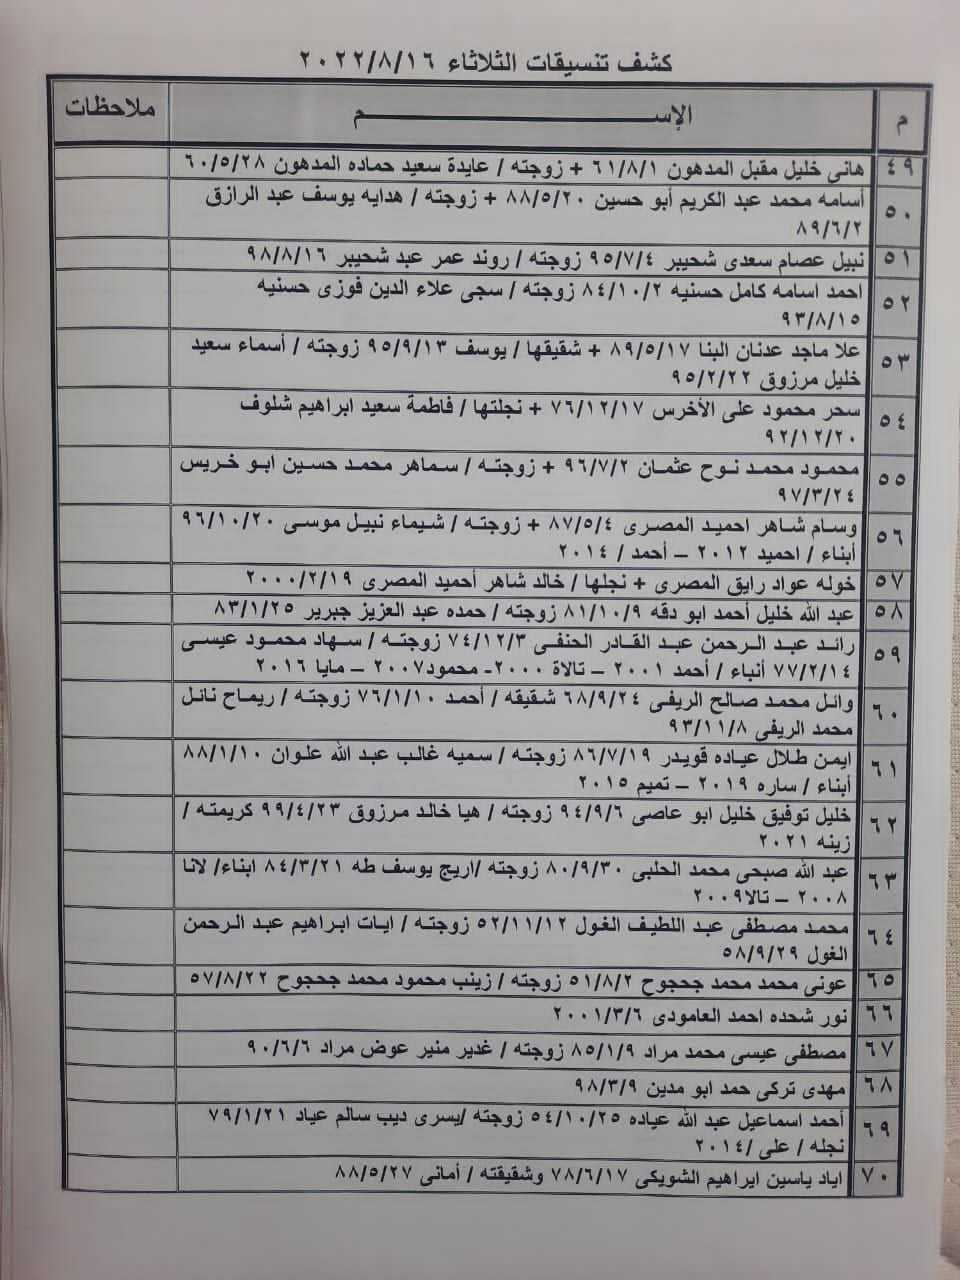 كشف تنسيقات الثلاثاء ٢٠٢٢/٨/١٦
م الإســــــــم ملاحظات
٤٩ هانى خليل مقبل المدهون ٦١/٨/١ + زوجته / عايدة سعيد حماده المدهون ٦٠/٥/٢٨
٥٠ أسامه محمد عبد الكريم أبو حسين ٨٨/٥/٢٠ + زوجته / هدايه يوسف عبد الرازق
٨٩/٦/٢
٥١ نبيل عصام سعدى شحيبر ٩٥/٧/٤ زوجته / روند عمر عبد شحيبر ٩٨/٨/١٦
٥٢ احمد اسامه كامل حسنيه ٨٤/١٠/٢ زوجته / سجى علاء الدين فوزى حسنيه
٩٣/٨/١٥
٥٣ علا ماجد عدنان البنا ٨٩/٥/١٧ + شقيقها / يوسف ٩٥/٩/١٣ زوجته / أسماء سعيد
خليل مرزوق ٩٥/٢/٢٢
٥٤ سحر محمود على الأخرس ٧٦/١٢/١٧ + نجلتها / فاطمة سعيد ابراهيم شلوف
٩٢/١٢/٢٠
٥٥ محمود محمد نوح عثمان ٩٦/٧/٢ + زوجته / سماهر محمد حسين ابو خريس
٩٧/٣/٢٤
٥٦ وسام شاهر احميد المصرى ٨٧/٥/٤ + زوجته / شيماء نبيل موسى ٩٦/١٠/٢٠
أبناء / احميد ٢٠١٢ – أحمد / ٢٠١٤
٥٧ خوله عواد رايق المصرى + نجلها / خالد شاهر أحميد المصرى ٢٠٠٠/٢/١٩
٥٨ عبد الله خليل أحمد ابو دقه ٨١/١٠/٩ زوجته / حمده عبد العزيز جبرير ٨٣/١/٢٥
٥٩ رائد عبد الرحمن عبد القادر الحنفى ٧٤/١٢/٣ زوجته / سهاد محمود عيسى
٧٧/٢/١٤ أنباء / أحمد ٢٠٠١ – تالاة ٢٠٠٠- محمود٢٠٠٧ – مايا ٢٠١٦
٦٠ وائل محمد صالح الريفى ٦٨/٩/٢٤ شقيقه / أحمد ٧٦/١/١٠ زوجته / ريماح نائل
محمد الريفى ٩٣/١١/٨
٦١ ايمن طلال عياده قويدر ٨٦/٧/١٩ زوجته / سميه غالب عبد الله علوان ٨٨/١/١٠
أبناء / ساره ٢٠١٩ – تميم ٢٠١٥
٦٢ خليل توفيق خليل ابو عاصى ٩٤/٩/٦ زوجته / هيا خالد مرزوق ٩٩/٤/٢٣ كريمته /
زينه ٢٠٢١
٦٣ عبد الله صبحى محمد الحلبى ٨٠/٩/٣٠ زوجته /اريج يوسف طه ٨٤/٣/٢١ ابناء/ لانا
٢٠٠٨ – تالا٢٠٠٩
٦٤ محمد مصطفى عبد اللطيف الغول ٥٢/١١/١٢ زوجته / ايات ابراهيم عبد الرحمن
الغول ٥٨/٩/٢٩
٦٥ عونى محمد محمد جحجوح ٥١/٨/٢ زوجته / زينب محمود محمد جحجوح ٥٧/٨/٢٢
٦٦ نور شحده احمد العامودى ٢٠٠١/٣/٦
٦٧ مصطفى عيسى محمد مراد ٨٥/١/٩ زوجته / غدير منير عوض مراد ٩٠/٦/٦
٦٨ مهدى تركى حمد ابو مدين ٩٨/٣/٩
٦٩ أحمد اسماعيل عبد الله عياده ٥٤/١٠/٢٥ زوجته /يسرى ديب سالم عياد ٧٩/١/٢١
نجله / على /٢٠١٤
٧٠ اياد ياسين ايراهيم الشويكى ٧٨/٦/١٧ وشقيقته / أمانى ٨٨/٥/٢٧